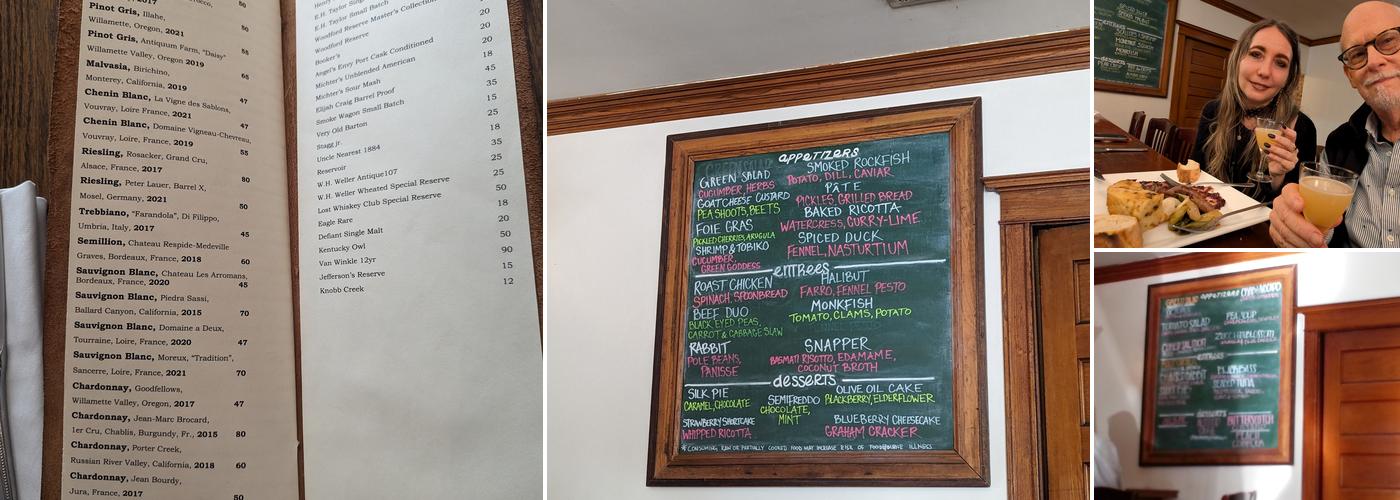 2017
50
Pinot Gris, Illahe,
Willamette, Oregon, 2021
50
Pinot Gris, Antiquum Farm, "Daisy"
Willamette Valley, Oregon 2019
55
Malvasia, Birichino,
Monterey, California, 2019
65
Chenin Blanc, La Vigne des Sablons,
Vouvray, Loire France, 2021
47
Chenin Blanc, Domaine Vigneau-Chevreau,
Vouvray, Loire, France, 2019
55
Riesling, Rosacker, Grand Cru,
Alsace, France, 2017
80
Riesling, Peter Lauer, Barrel X,
Mosel, Germany, 2021
50
Trebbiano, "Farandola", Di Filippo,
Umbria, Italy, 2017
45
Semillion, Chateau Respide-Medeville
Graves, Bordeaux, France, 2018 60
Sauvignon Blanc, Chateau Les Arromans,
Bordeaux, France, 2020 45
Sauvignon Blanc, Piedra Sassi,
Ballard Canyon, California, 2015 70
Sauvignon Blanc, Domaine a Deux,
Tourraine, Loire, France, 2020 47
Sauvignon Blanc, Moreux, "Tradition",
Sancerre, Loire, France, 2021 70
Chardonnay, Goodfellows,
Willamette Valley, Oregon, 2017 47
Chardonnay, Jean-Marc Brocard,
1er Cru, Chablis, Burgundy, Fr., 2015 80
Chardonnay, Porter Creek,
Russian River Valley, California, 2018 60
Chardonnay, Jean Bourdy,
Jura, France, 2017
50
E.H. Taylor Small Batch
Woodford Reserve Master's Collection
Woodford Reserve
Booker's
Angel's Envy Port Cask Conditioned
Michter's Unblended American
Michter's Sour Mash
Elijah Craig Barrel Proof
Smoke Wagon Small Batch
Very Old Barton
Stagg jr.
Uncle Nearest 1884
Reservoir
W.H. Weller Antique107
W.H. Weller Wheated Special Reserve
Lost Whiskey Club Special Reserve
Eagle Rare
Defiant Single Malt
Kentucky Owl
Van Winkle 12yr
Jefferson's Reserve
Knobb Creek
20
20
20
18
45
35
15
25
18
35
25
25
50
18
20
50
90
15
12
appetizers
GREEN SALAD
CUCUMBER, HERBS
GOAT CHEESE CUSTARD
PEA SHOOTS, BEETS
FOIE GRAS
PICKLED CHERRIES, ARUGULA
SHRIMP & TOBIKO
CUCUMBER,
GREEN GODDESS
SMOKED ROCKFISH
POTATO, DILL, CAVIAR
PÂTE
PICKLES, GRILLED BREAD
BAKED RICOTTA
WATERCRESS, CURRY-LIME
SPICED DUCK
FENNEL, NASTURTIUM
entrees
ROAST CHICKEN
SPINACH, SPOONBREAD
BEEF DUO
BLACK EYED PEAS,
CARROT & CABBAGE SLAW
RABBIT
POLE BEANS,
PANISSE
HALIBUT
FARRO, FENNEL PESTO
MONKFISH
TOMATO, CLAMS, POTATO
SNAPPER
BASMATI RISOTTO, EDAMAME,
COCONUT BROTH
desserts
SILK PIE
CARAMEL, CHOCOLATE
STRAWBERRY SHORTCAKE
WHIPPED RICOTTA
SEMIFREDDO
CHOCOLATE,
MINT
OLIVE OIL CAKE
BLACKBERRY, ELDERFLOWER
BLUEBERRY CHEESECAKE
GRAHAM CRACKER
* CONSUMING RAW OR PARTIALLY COOKED FOOD MAY INCREASE RISK OF FOODBORNE ILLNESS
SPICED DUCK
MONKFISH
desserts
appetizers
TOMATO SALAD
PEA SOUP
entrees
desserts
BUTTERSCOTCH